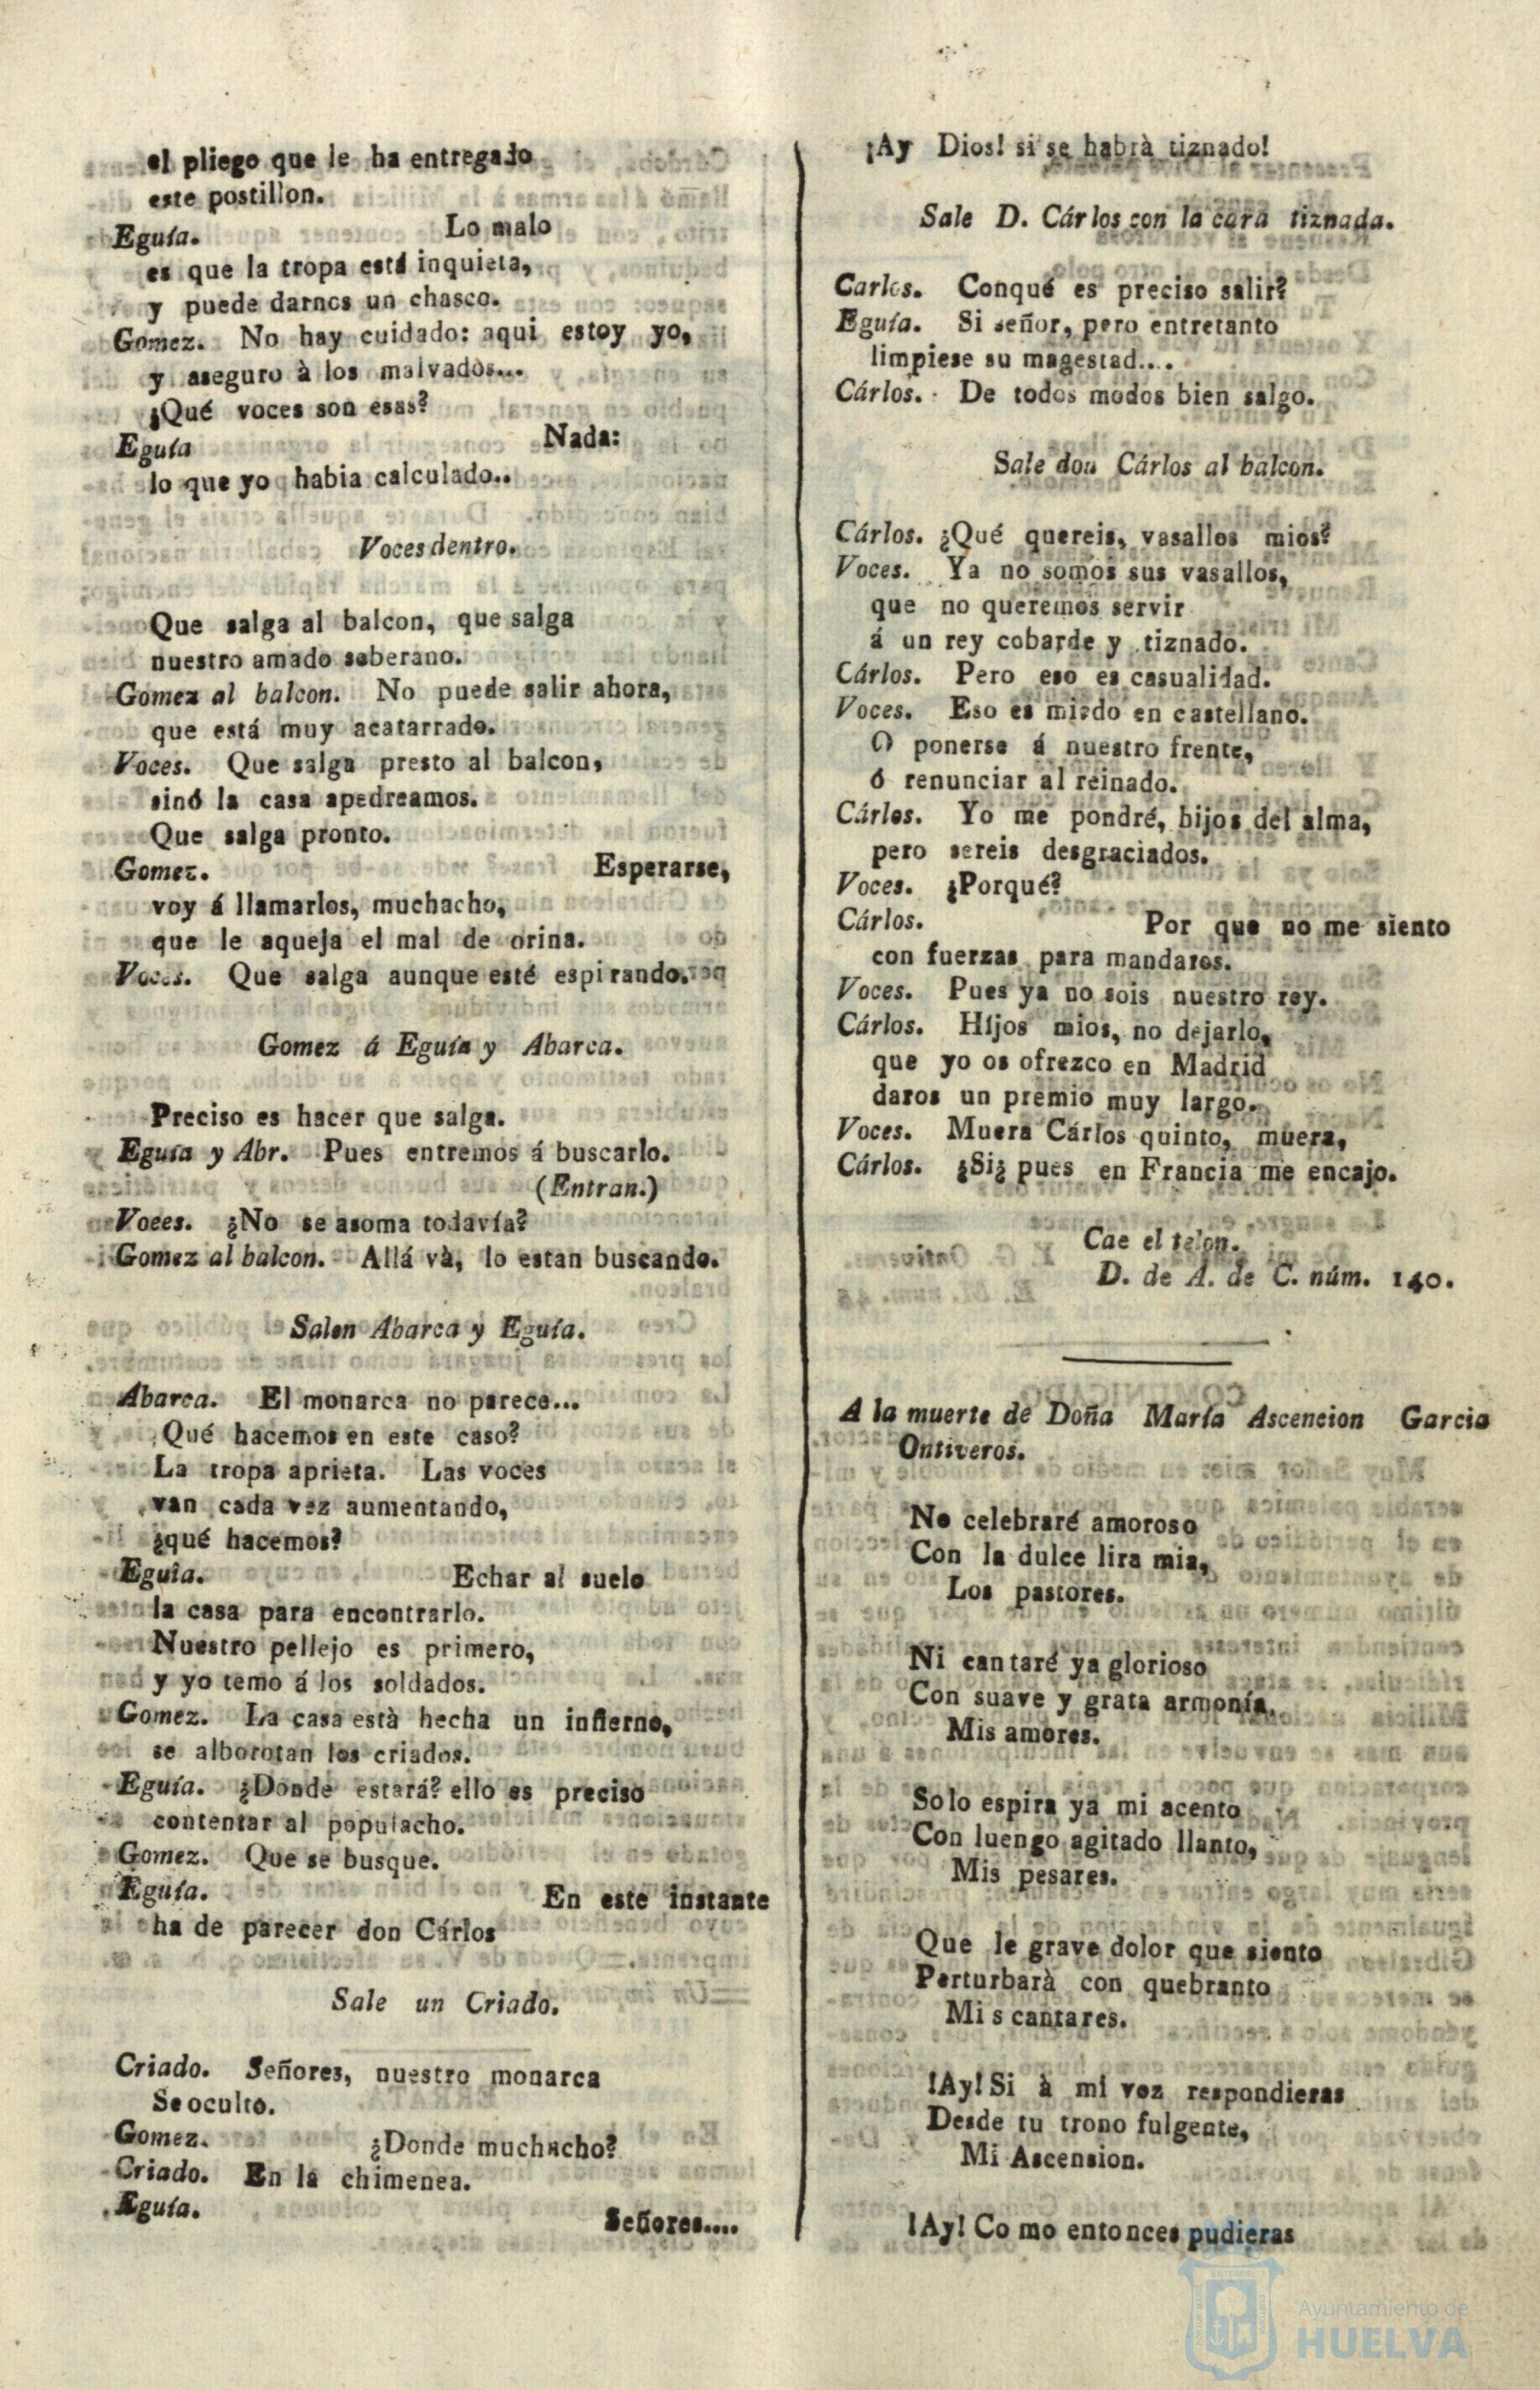 el pliego que le ha entregado
este postillon.
Eguía. Lo malo
es que la tropa está inquieta,
y puede darnos un chasco.
Gomez. No hay cuidado: aqui estoy yo,
y aseguro à los malvados...
¿Qué voces son esas?
Eguía Nada:
lo que yo habia calculado..
Voces dentro.
Que salga al balcon, que salga
nuestro amado soberano.
Gomez al balcon. No puede salir ahora,
que está muy acatarrado.
Voces. Que salga presto al balcon,
sinó la casa apedreamos.
Que salga pronto.
Gomez. Esperarse,
voy á llamarlos, muchacho,
que le aqueja el mal de orina.
Voces. Que salga aunque esté espirando.
Gomez á Eguía y Abarca.
Preciso es hacer que salga.
Eguía y Abr. Pues entremos á buscarlo.
(Entran.)
Voces. ¿No se asoma todavía?
Gomez al balcon. Allá và, lo estan buscando.
Salen Abarca y Eguía.
Abarca. El monarca no parece...
Qué hacemos en este caso?
La tropa aprieta. Las voces
van cada vez aumentando,
¿qué hacemos?
Eguía. Echar al suelo
la casa para encontrarlo.
Nuestro pellejo es primero,
y yo temo á los soldados.
Gomez. La casa està hecha un infierno,
se alborotan los criados.
Eguía. ¿Donde estará? ello es preciso
contentar al populacho.
Gomez. Que se busque.
Eguía. En este instante
ha de parecer don Cárlos
Sale un Criado.
Criado. Señores, nuestro monarca
Se oculto.
Gomez. ¿Donde muchacho?
Criado. En la chimenea.
Eguía. Señores....
¡Ay Dios! si se habrà tiznado!
Sale D. Cárlos con la cara tiznada.
Carlos. Conqué es preciso salir?
Eguía. Si señor, pero entretanto
limpiese su magestad....
Cárlos. De todos modos bien salgo.
Sale don Cárlos al balcon.
Cárlos. ¿Qué quereis, vasallos mios?
Voces. Ya no somos sus vasallos,
que no queremos servir
á un rey cobarde y tiznado.
Cárlos. Pero eso es casualidad.
Voces. Eso es miedo en castellano.
O ponerse á nuestro frente,
ó renunciar al reinado.
Cárlos. Yo me pondré, hijos del alma,
pero sereis desgraciados.
Voces. ¿Porqué?
Cárlos. Por que no me siento
con fuerzas para mandaros.
Voces. Pues ya no sois nuestro rey.
Cárlos. Hijos mios, no dejarlo,
que yo os ofrezco en Madrid
daros un premio muy largo.
Voces. Muera Cárlos quinto, muera,
Cárlos. ¿Si¿ pues en Francia me encajo.
Cae el telon.
D. de A. de C. núm. 140.
A la muerte de Doña María Ascencion Garcia
Ontiveros.
No celebraré amoroso
Con la dulce lira mia,
Los pastores.
Ni cantaré ya glorioso
Con suave y grata armonía,
Mis amores.
Solo espira ya mi acento
Con luengo agitado llanto,
Mis pesares.
Que le grave dolor que siento
Perturbarà con quebranto
Mis cantares.
!Ay! Si à mi voz respondieras
Desde tu trono fulgente,
Mi Ascension.
!Ay! Co mo entonces pudieras
Ayuntamiento de
HUELVA